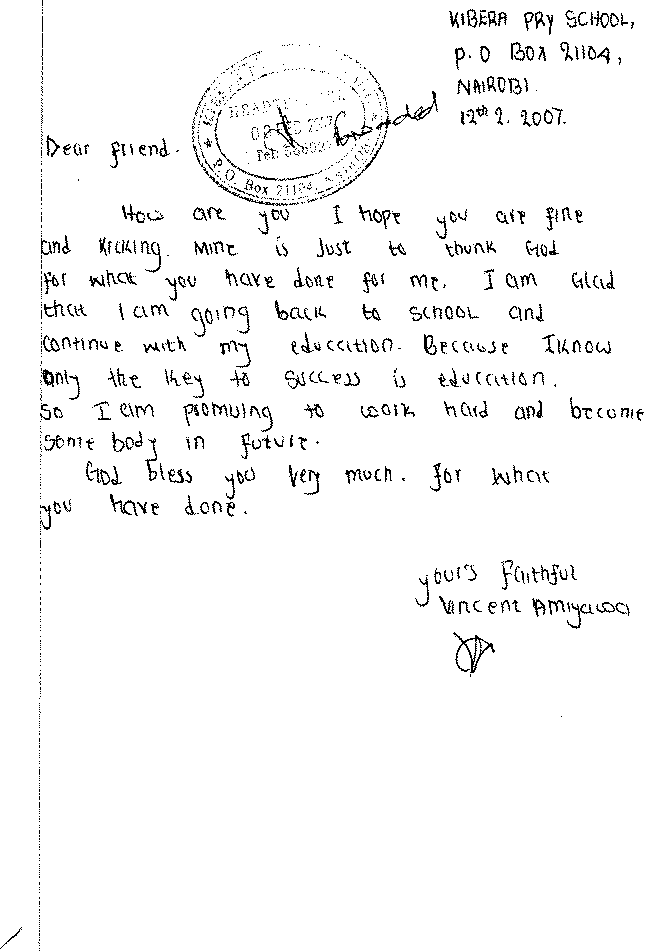 KIBERA PRY SCHOOL,
P.O BOX 21104,
NAIROBI.
12th 2. 2007.
P.O. Box 21104, NAIROBI
Dear friend.
How are you I hope you are fine
and kicking. Mine is Just to thunk God
for what you have done for me. I am Glad
that I am going back to school and
continue with my education. Because I know
only the key to success is education.
so I am promising to work hard and become
some body in future.
God bless you very much. for what
you have done.
yours faithful
Vincent Amiyawa